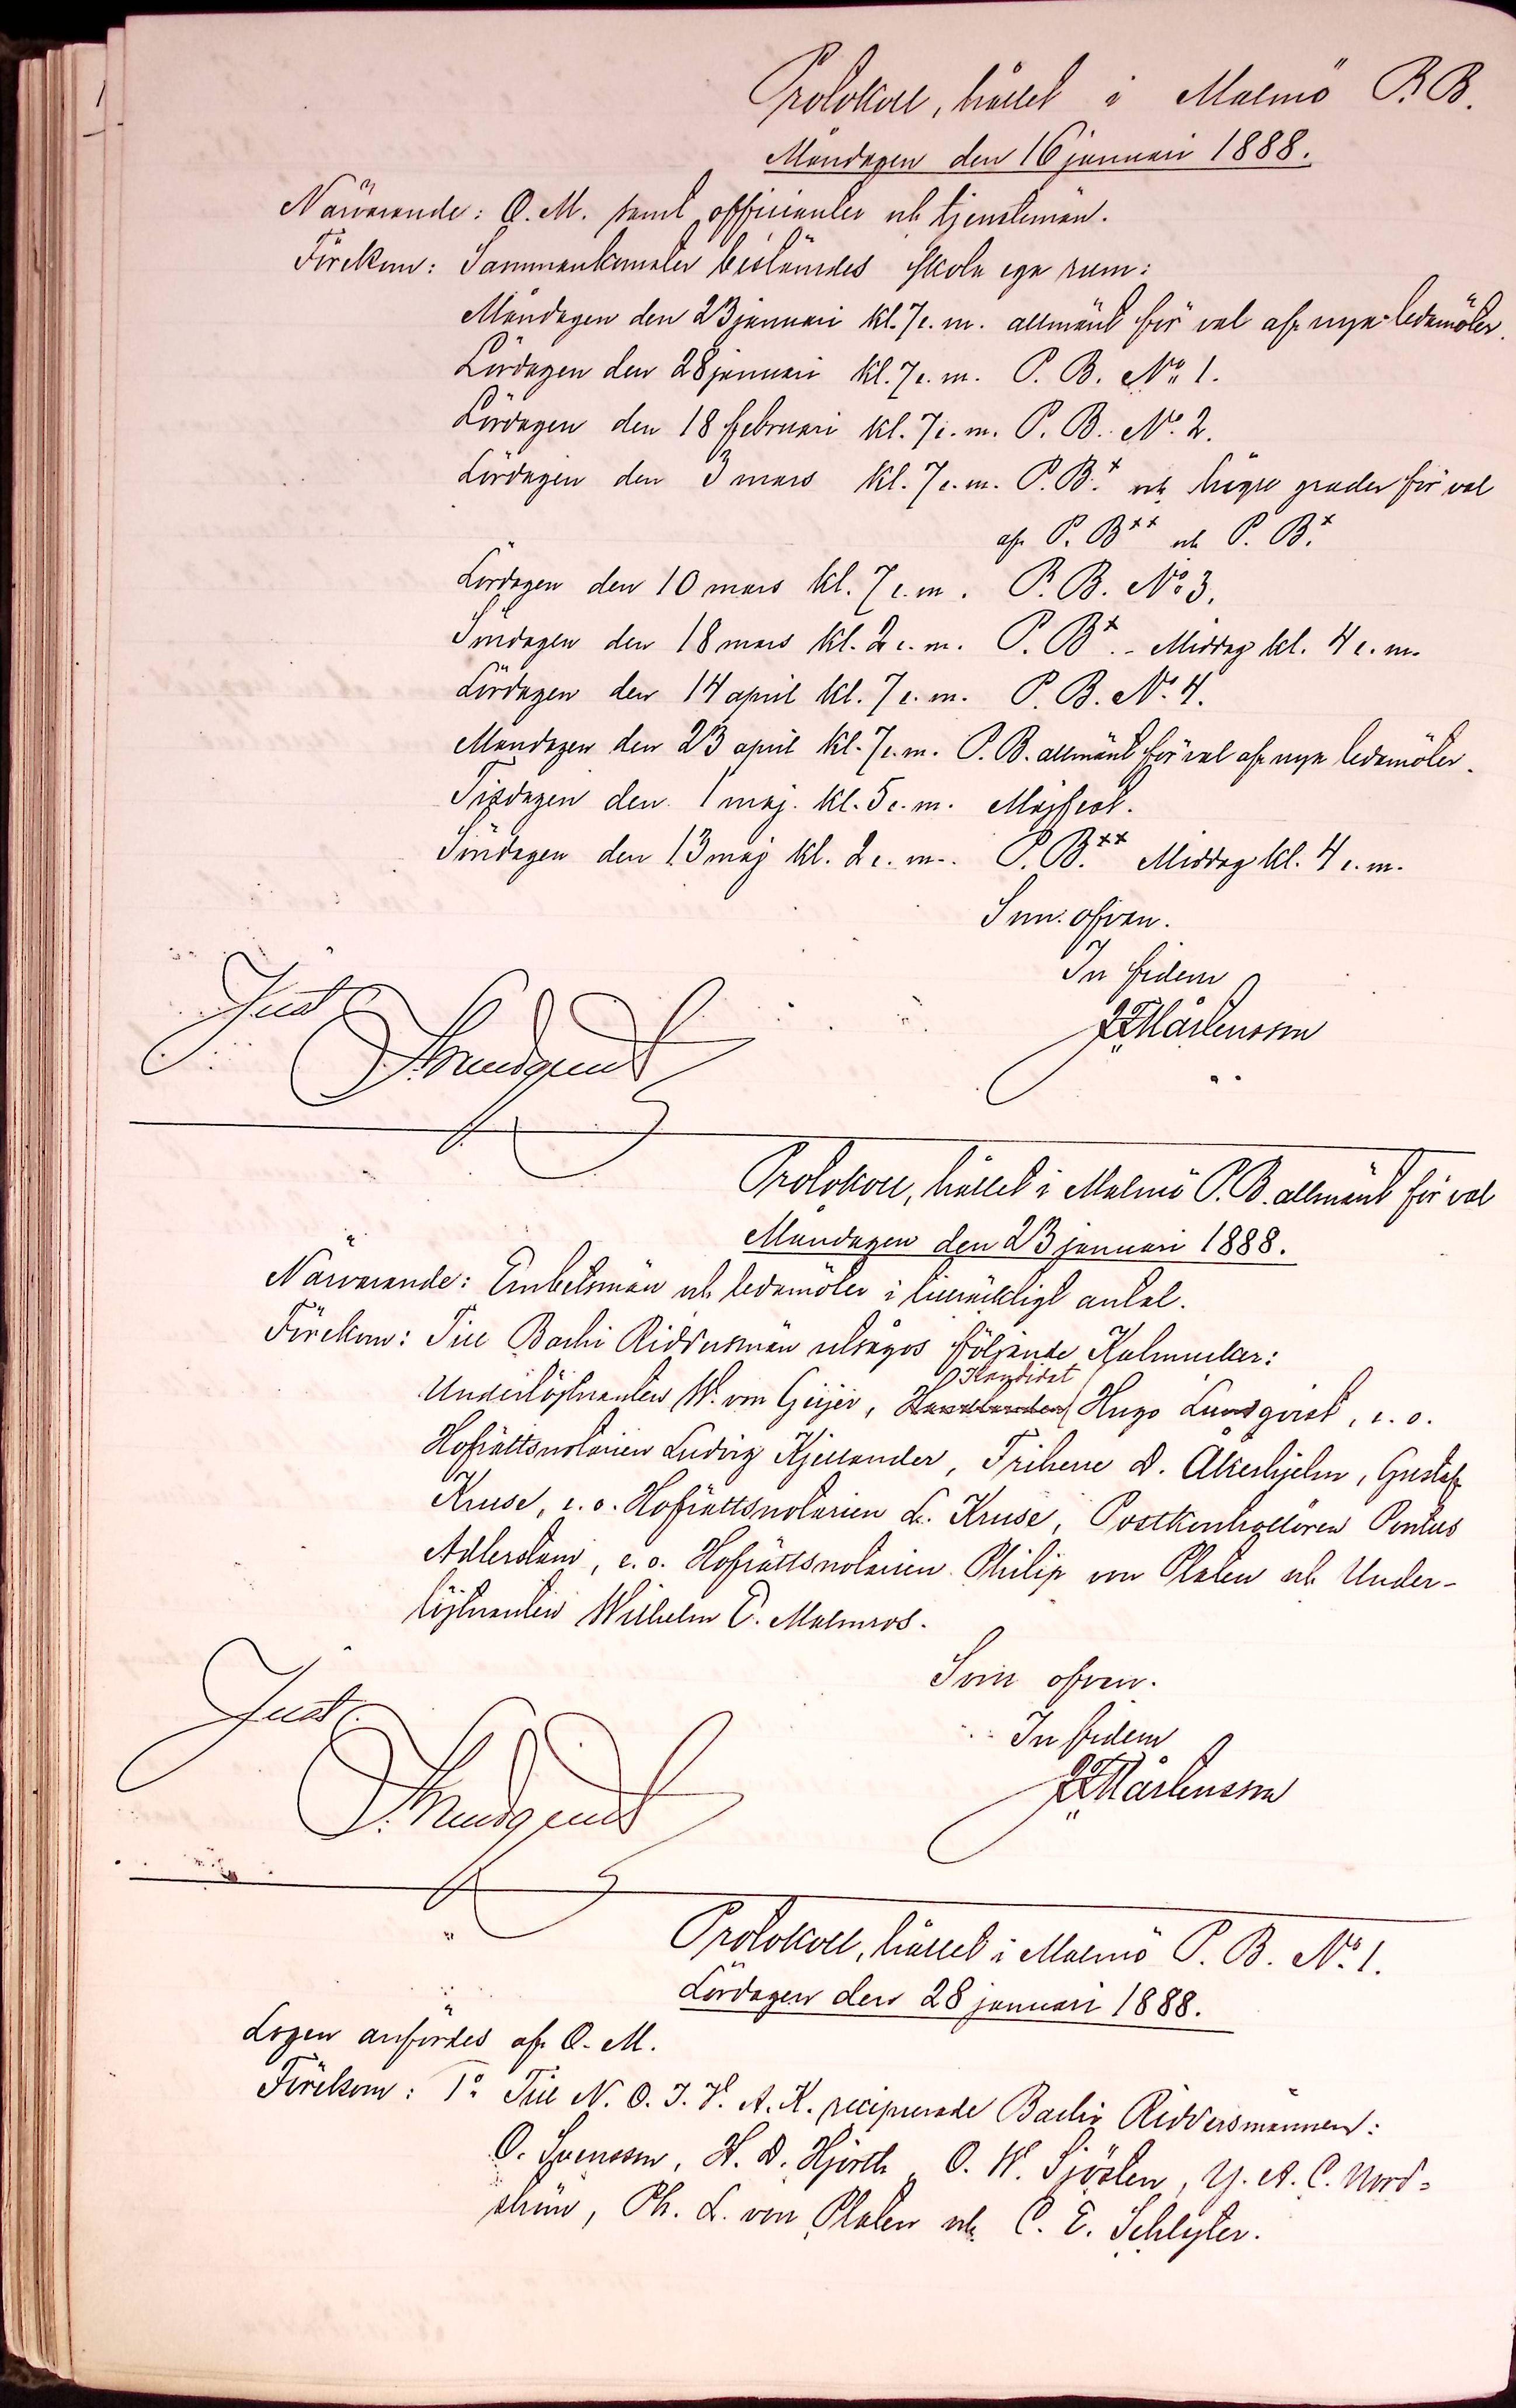 Protokoll, hållet i Malmö P. B.
Måndagen den 16 januari 1888.
Närvarande: O. M. samt officianter och tjenstemän.
Förekom: Sammankomster bestämdes skola ega rum:
Måndagen den 23 januari kl. 7 e. m. allmänt för val af nya ledamöter.
Lördagen den 28 januari kl. 7 e. m. P. B. No. 1.
Lördagen den 18 februari kl. 7 e. m. P. B. No. 2.
Lördagen den 3 mars kl. 7 e. m. P. B.+ och högre grader för val
af P. B++ och P. B.+
Lördagen den 10 mars kl. 7 e. m. P. B. No 3.
Söndagen den 18 mars kl. 2 e. m. P. B+. - Middag kl. 4 e. m.
Lördagen den 14 april kl. 7 e. m. P. B. No. 4.
Måndagen den 23 april kl. 7 e. m. P. B. allmänt för val af nya ledamöter.
Tisdagen den 1 maj. kl. 5 e. m. Majfest.
Söndagen den 13 maj kl. 2 e. m. P. B.++ Middag kl. 4 e. m.
Som ofvan.
In fidem
Just
Mårtensson
Protokoll, hållet i Malmö P. B. allmänt för val
Måndagen den 23 januari 1888.
Närvarande: Embetsmän och ledamöter i tillräckligt antal.
Förekom: Till Bachi Riddersmän utsågos följande Kalmuckar:
Kandidat
Underlöjtnanten W. von Geijer, Handlanden Hugo Lundqvist, e. o.
Hofrättsnotarien Ludvig Kjellander, Friherre D. Åkerhjelm, Gustaf
Kruse, e. o. Hofrättsnotarien L. Kruse, Postkontrollören Pontus
Adlerstam, e. o. Hofrättsnotarien Philip von Platen och Under-
löjtnanten Wilhelm E. Malmros.
Som ofvan.
In fidem
Just.
Mårtensson
Protokoll, hållet i Malmö P. B. No. 1.
Lördagen den 28 januari 1888.
Logen anfördes af O. M.
Förekom: 1o Till N. O. I. V. A. K. recipierade Bachi Riddersmännen:
O. Svensson, H. D. Hjorth, O. W. Sjösten, Y. A. C. Nord-
ström, Ph. L. von Platen och C. E. Schlyter.